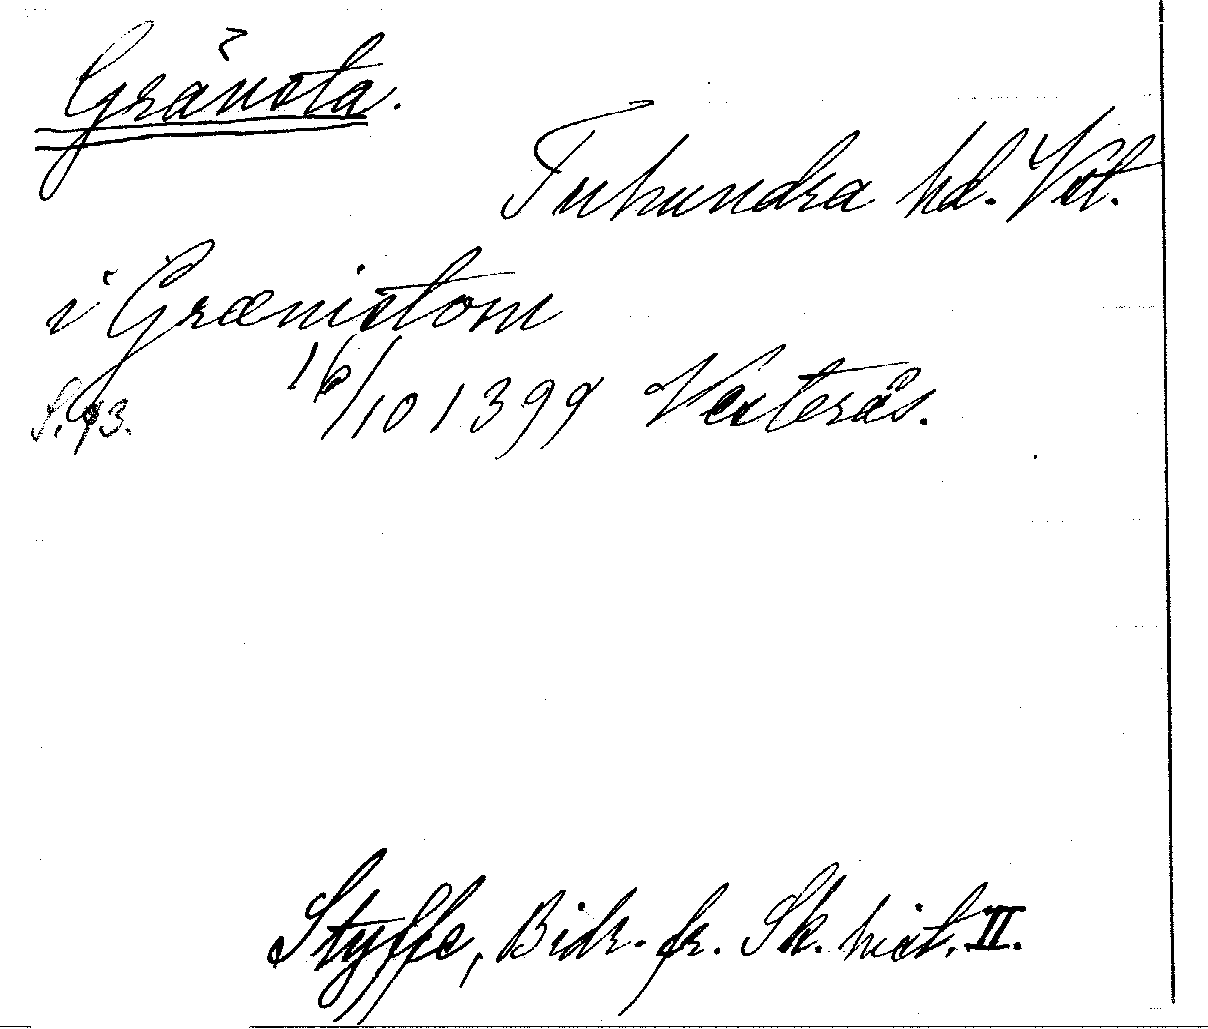 Gränsta.
Tuhundra hd. Vst.
i Grænistom
16/10 1399 Vesterås.
S. 93.
Styffe, Bidr. fr. Sk. hist. II.